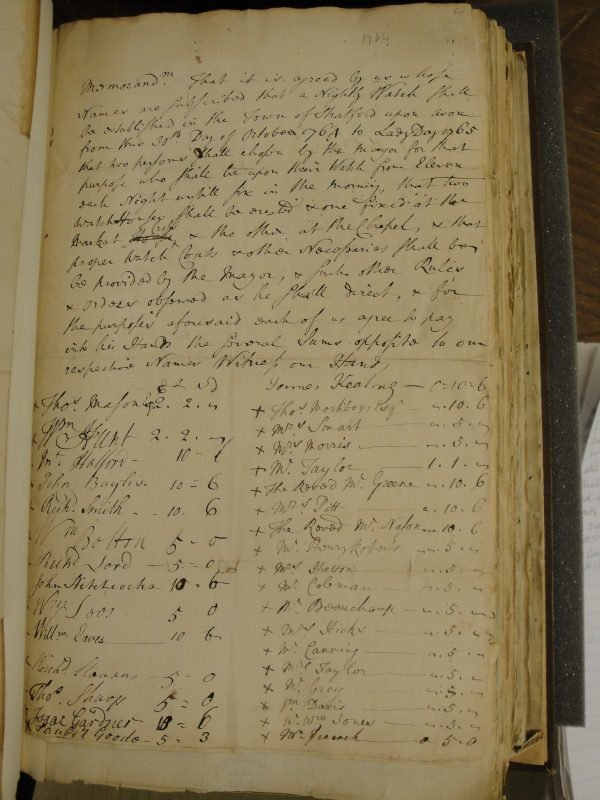 1764
Memorand.m That it is agreed by us whose
Names are subscribed that a Nightly Watch shall
be established in the Town of Stratford upon avon
from this 30th Day of October 1764 to Lady Day 1765
that two persons shall chosen by the Mayor for that
purpose who shall be upon their Watch from Eleven
each Night untill five in the morning, that two
watch Houses shall be erected & one fixed at the
Market Cross, & the other at the Chapel, & that
proper watch Coats & other Necessaries shall be
be provided by the Mayor, & such other Rules
& orders observed as he shall direct, & for
the purposes aforesaid each of us agree to pay
into his Hands the several Sums opposite to our
respective Names Witness our Hands
Thos. Mason 2. 2.
Wm Hunt 2. 2.
Halford 10
John Bayliss 10 = 6
Richd. Smith - 10. 6
Wm 5 - 0
Lord 5 = 0
John Hitchcocks 10 = 6
5 0
Willm Eaves 10 6
Richd. Stevens 5 = 0
Thos. Sharp 5 = 0
Isaac Gardner 10 = 6
Goode 5 = 3
James Keating — 0=10=6
+ Thos. Esqr. 10. 6
+ Mrs Smart 5.
+ Mrs Morris 5.
+ Mr. Taylor 1. 1.
+ The Revd. Mr. Greene 10. 6
+ Mrs Pitt 10. 6
The Revd Mr. Nason 10. 6
+ Mr. Henry Roberts 5.
+ Mrs 5.
+ Mr. Coleman 5.
+ Mr. Beauchamp 5.
+ Mrs Hicks 5.
+ Mr. Canning 5.
+ Mrs Taylor 5.
+ Mr. Grey 5.
+ Davis 5.
+ Mr. Wm Jones 5.
+ Mr. Peacock 0 5. 0